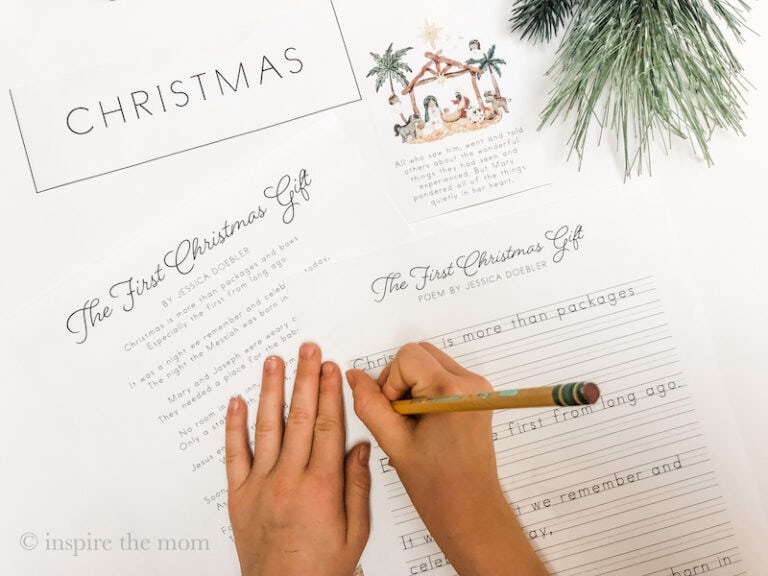 CHRISTMAS
All who saw him, went and told
others about the wonderful
things they had seen and
experienced. But Mary
pondered all of the things
quietly in her heart.
The First Christmas Gift
BY JESSICA DOEBLER
Christmas is more than packages and bows
Especially the first from long ago.
It was a night we remember and celeb today,
The night the Messiah was born in
Mary and Joseph were weary
They needed a place for the
No room in inn,
Only a
Jesus
Soon
The First Christmas Gift
POEM BY JESSICA DOEBLER
Chris is more than packages
first from long ago.
It w t we remember and
cele day,
born in
© inspire the mom